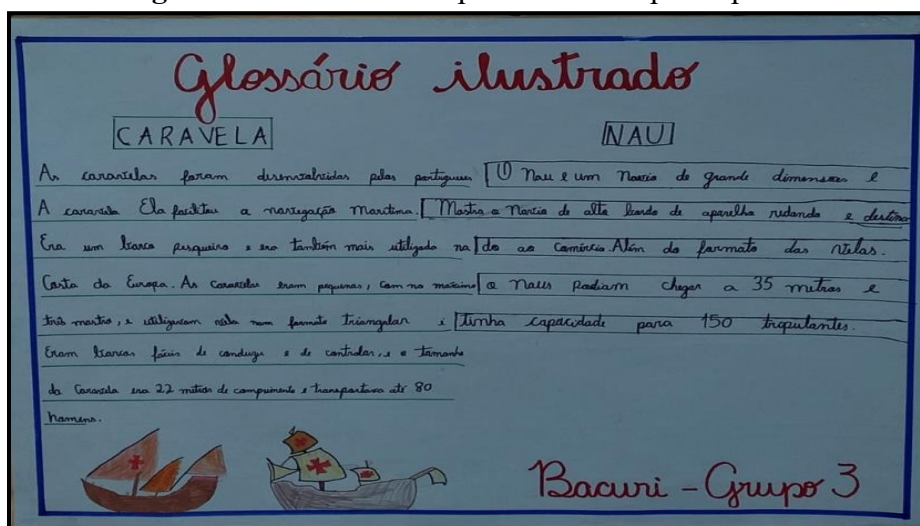 Glossário ilustrado
CARAVELA
As caravelas foram desenvolvidas pelos portugueses
A caravela Ela facilitou a navegação Maritima.
Era um barco pesqueiro e era também mais utilizado na
Costa da Europa. As Caravelas eram pequenas, com no maximo
três mastro, e utilizavam vela num formato triangular e
Eram barcos fáceis de conduzir e de controlar, e o tamanho
da Caravela era 22 metros de comprimento e transportava até 80
homens.
NAU
Nau e um Navio de grande dimensoes e
Mostra o Navio de alto bordo de aparelho redondo e destina
do ao Comércio. Além do formato das Velas.
a Naus Podiam chegar a 35 metros e
tinha capacidade para 150 tropulantes.
Bacuri - Grupo 3